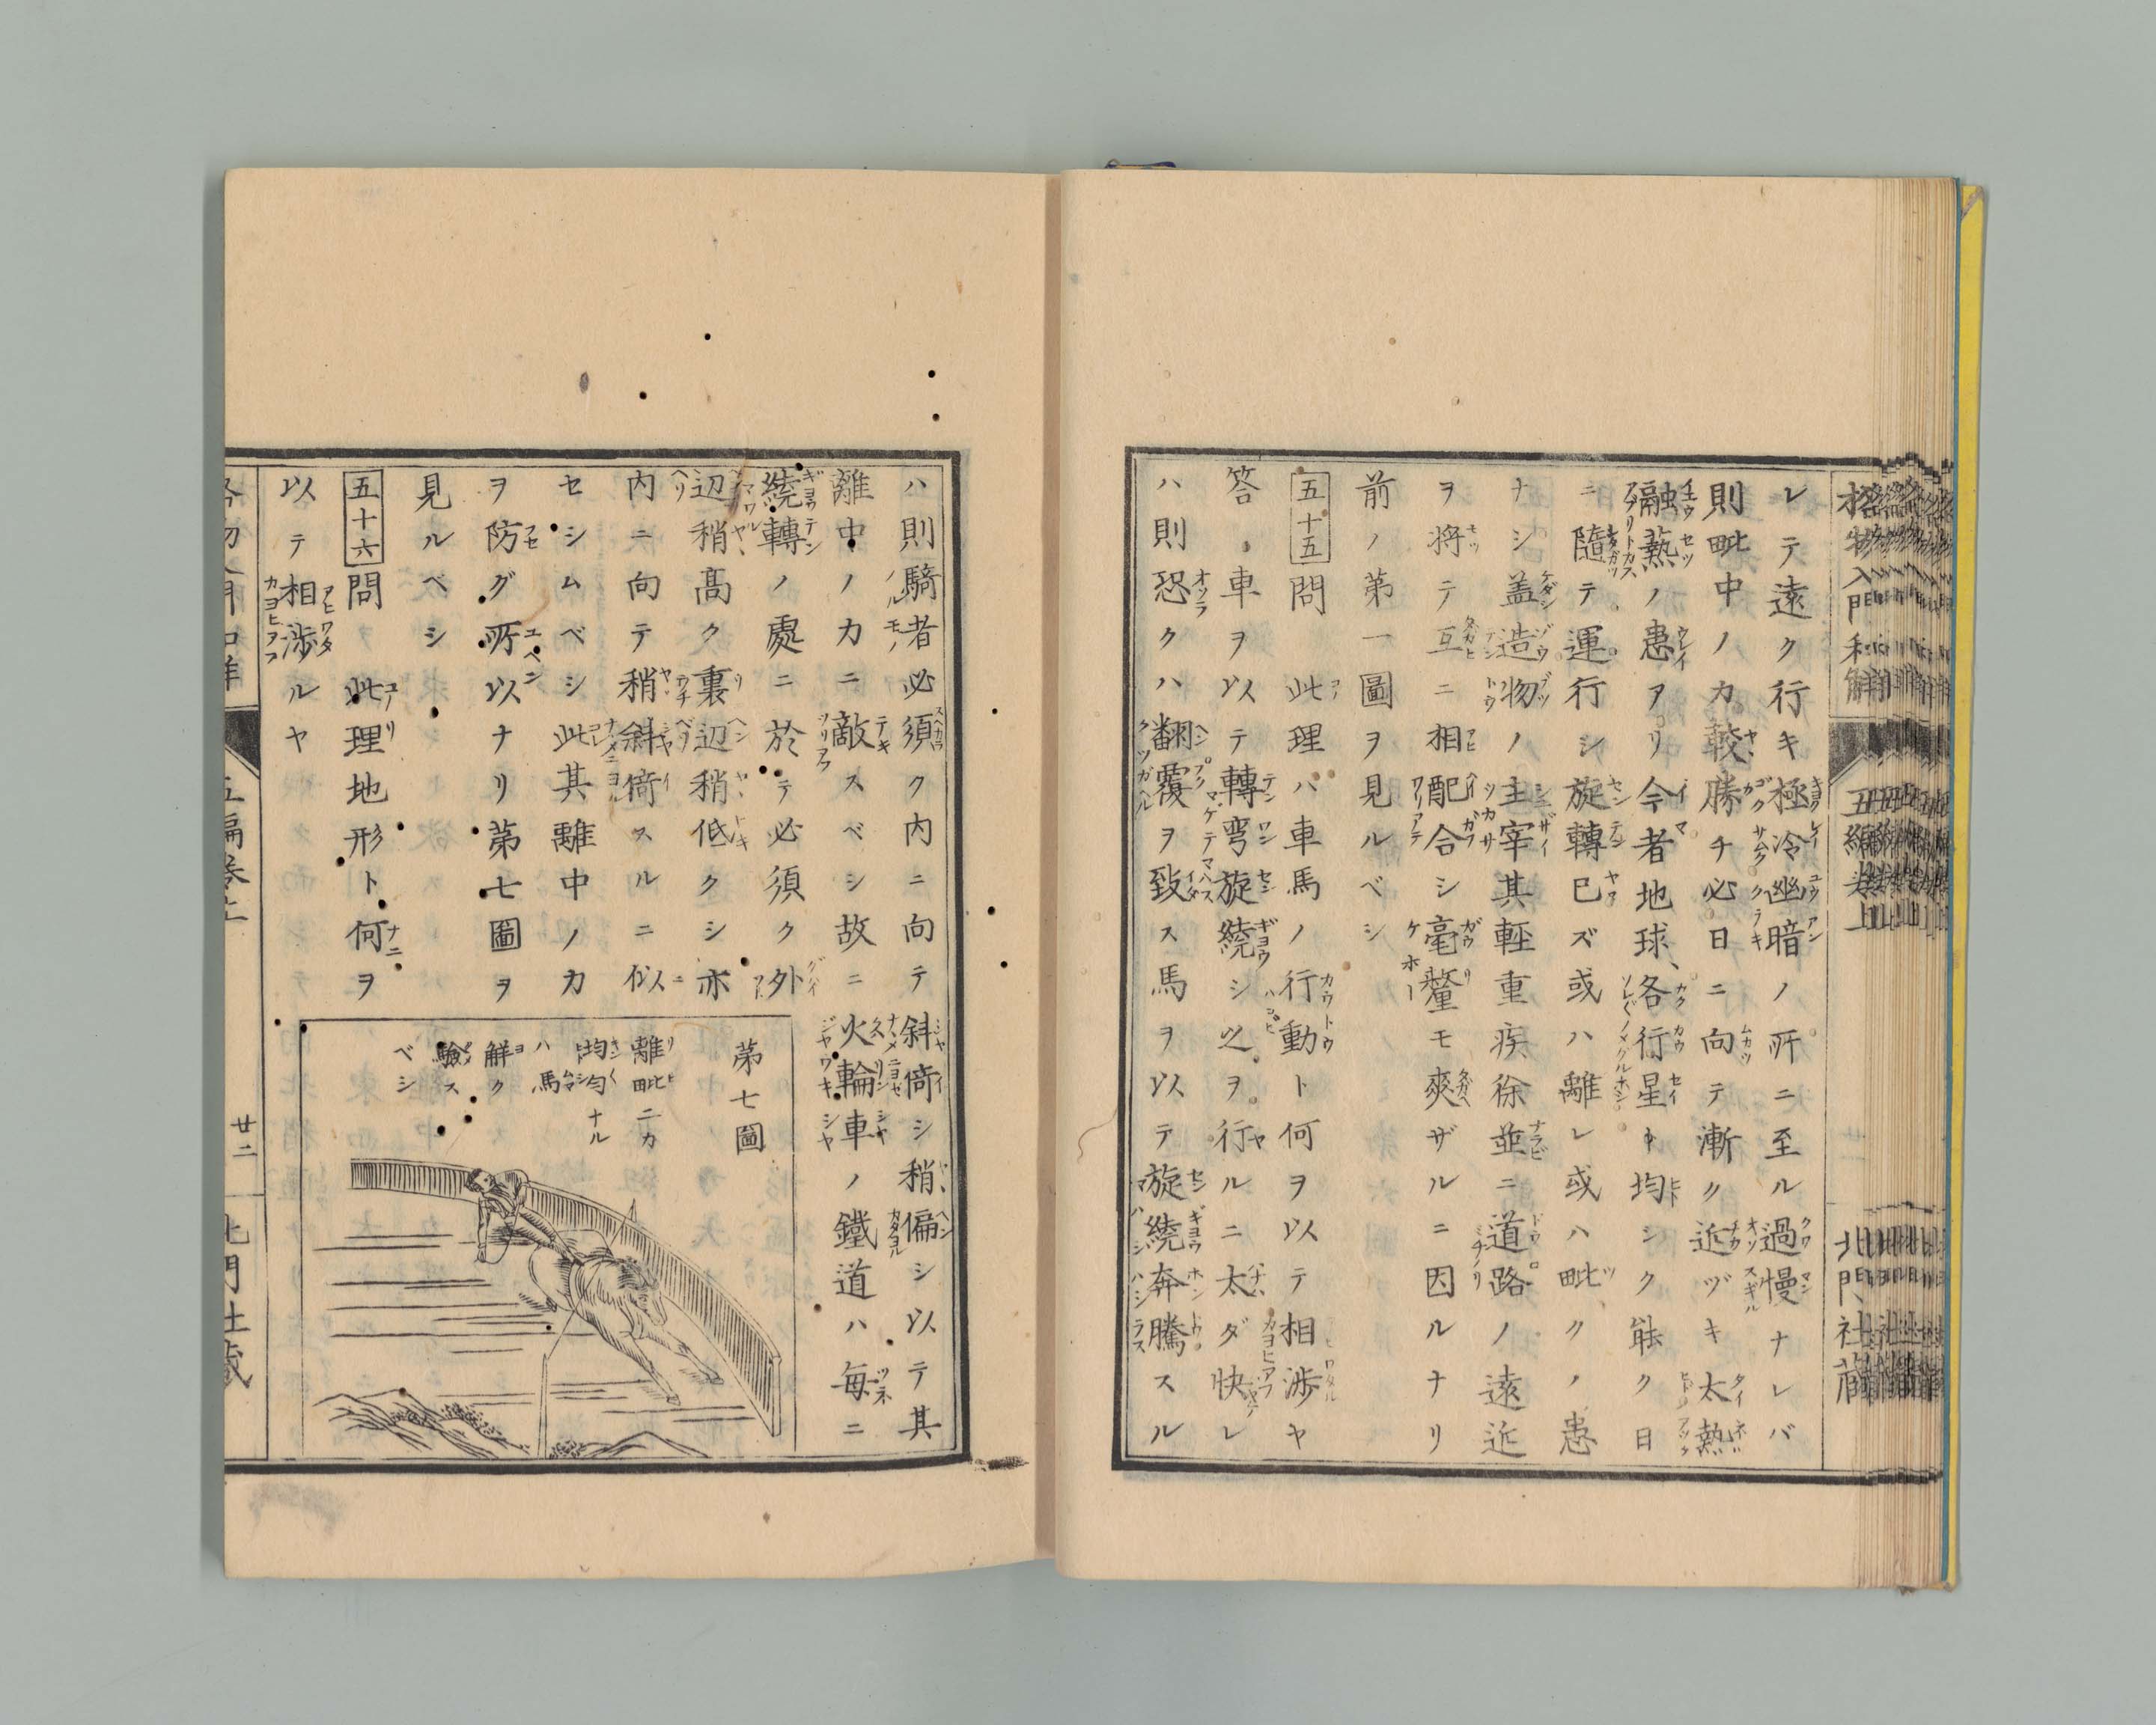 格物入門和解
五編巻上
北門社蔵
レテ遠ク行キ極冷幽暗ノ所ニ至ル過慢ナレバ
則毗中ノカ較勝チ必日ニ向テ漸ク近ヅキ太熱
融𤍠ノ患アリ今者地球、各行星ト均シク能ク日
ニ隨テ運行シ旋轉已ズ或ハ離レ或ハ毗クノ患
ナシ盖造物ノ主宰其軽重疾徐並ニ道路ノ遠近
ヲ将テ互ニ相配合シ毫釐モ爽ザルニ因ルナリ
前ノ第一圖ヲ見ルベシ
五十五問 此理バ車馬ノ行動ト何ヲ以テ相渉ヤ
答、車ヲ以テ轉弯旋繞シ之ヲ行ルニ太ダ快レ
ハ則恐クハ翻覆ヲ致ス馬ヲ以テ旋繞奔騰スル
ハ則騎者必須ク内ニ向テ斜倚シ稍偏シ以テ其
離中ノカニ敵スベシ故ニ火輪車ノ鐵道ハ毎ニ
繞轉ノ處ニ於テ必須ク外
辺稍髙ク裏辺稍低クシ亦
内ニ向テ稍斜倚スルニ似
セシムベシ此其離中ノカ
ヲ防グ所以ナリ第七圖ヲ
見ルベシ
五十六問 此理地形ト何ヲ
以テ相渉ルヤ
第七圖
離毗二カ
均匀ナル
ハ馬
觧ク
驗ス
ベシ
五編巻上
廿二
北門社蔵